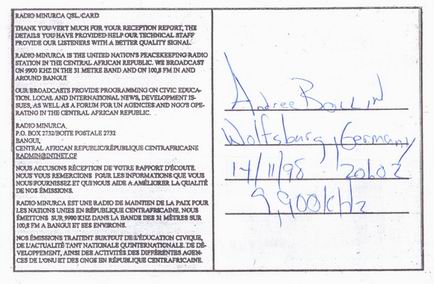 RADIO MINURCA QSL-CARD
THANK YOU VERY MUCH FOR YOUR RECEPTION REPORT, THE
DETAILS YOU HAVE PROVIDED HELP OUR TECHNICAL STAFF
PROVIDE OUR LISTENERS WITH A BETTER QUALITY SIGNAL.
RADIO MINURCA IS THE UNITED NATION'S PEACEKEEPING RADIO
STATION IN THE CENTRAL AFRICAN REPUBLIC. WE BROADCAST
ON 9900 KHZ IN THE 31 METRE BAND AND ON 100,8 FM IN AND
AROUND BANGUI
OUR BROADCASTS PROVIDE PROGRAMMING ON CIVIC EDUCA-
TION, LOCAL AND INTERNATIONAL NEWS, DEVELOPMENT IS-
SUES, AS WELL AS A FORUM FOR UN AGENCIES AND NGO'S OPE-
RATING IN THE CENTRAL AFRICAN REPUBLIC.
RADIO MINURCA,
P.O. BOX 2732/BOITE POSTALE 2732
BANGUI,
CENTRAL AFRICAN REPUBLIC/RÉPUBLIQUE CENTRAFRICAINE
RADMIN@INTNET.CF
NOUS ACCUSONS RÉCEPTION DE VOTRE RAPPORT D'ÉCOUTE.
NOUS VOUS REMERCIONS POUR LES INFORMATIONS QUE VOUS
NOUS FOURNISSEZ ET QUI NOUS AIDE A AMÉLIORER LA QUALITÉ
DE NOS ÉMISSIONS.
RADIO MINURCA EST UNE RADIO DE MAINTIEN DE LA PAIX POUR
LES NATIONS UNIES EN RÉPUBLIQUE CENTRAFRICAINE. NOUS
ÉMETTONS SUR 9900 KHZ DANS LA BANDE DES 31 MÈTRES SUR
100,8 FM A BANGUI ET SES ENVIRONS.
NOS ÉMISSIONS TRAITENT SURTOUT DE L'ÉDUCATION CIVIQUE,
DE L'ACTUALITÉ TANT NATIONALE QU'INTERNATIONALE. DE DÉ-
VELOPPEMENT, AINSI DES ACTIVITÉS DES DIFFÉRENTES AGEN-
CES DE L'ONU ET DES ONGS EN RÉPUBLIQUE CENTRAFRICAINE.
Andree
Wolfsburg, Germany
14/11/98 2002
9,900KHz